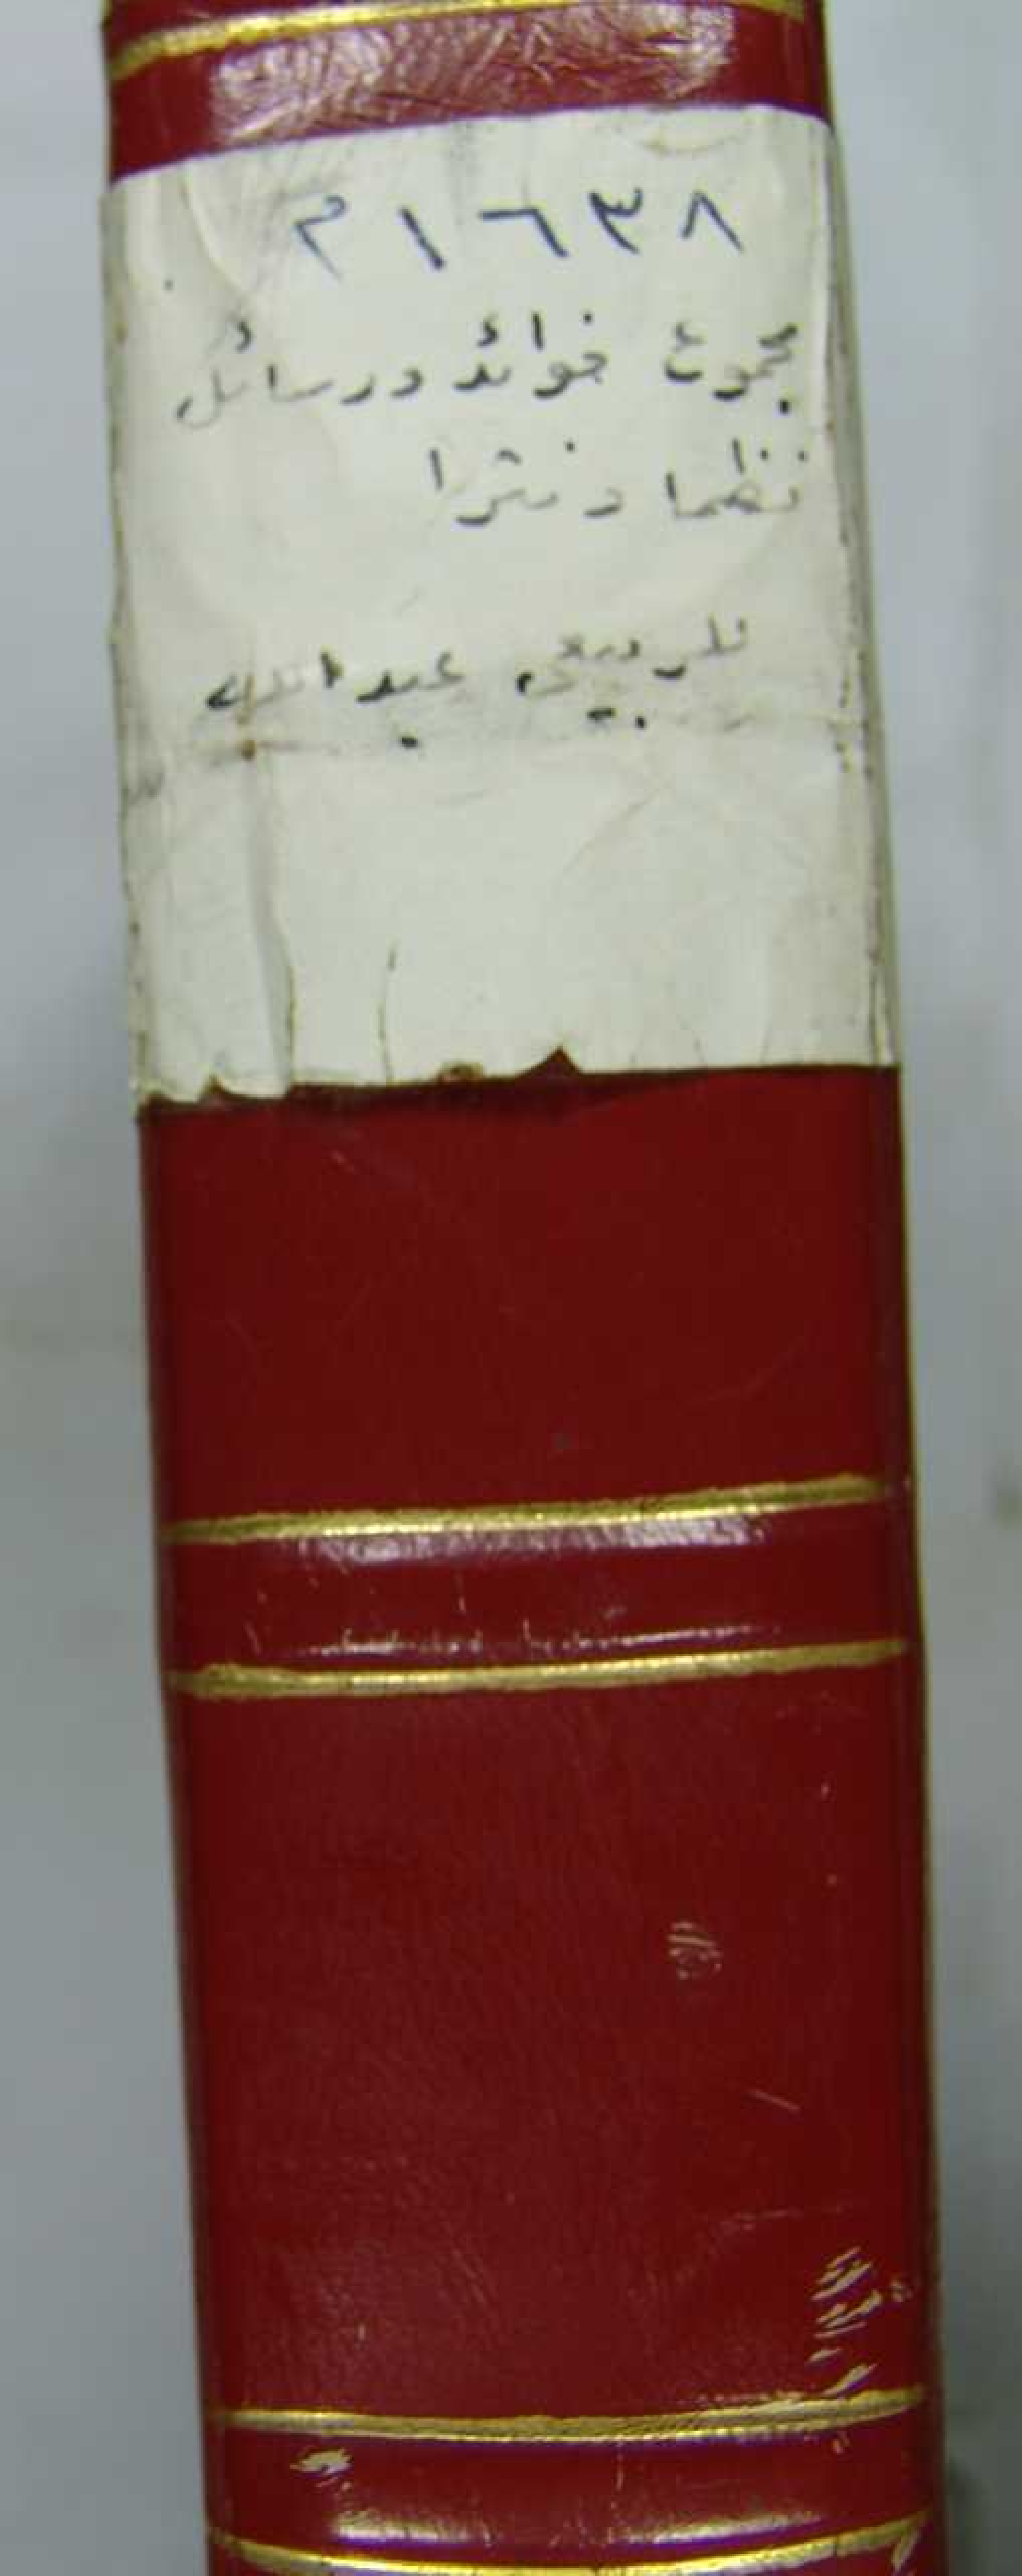 ٢١٦٣٨
مجموع فوائد ورسائل
نظما ونثرا
للربيعي عبدالله